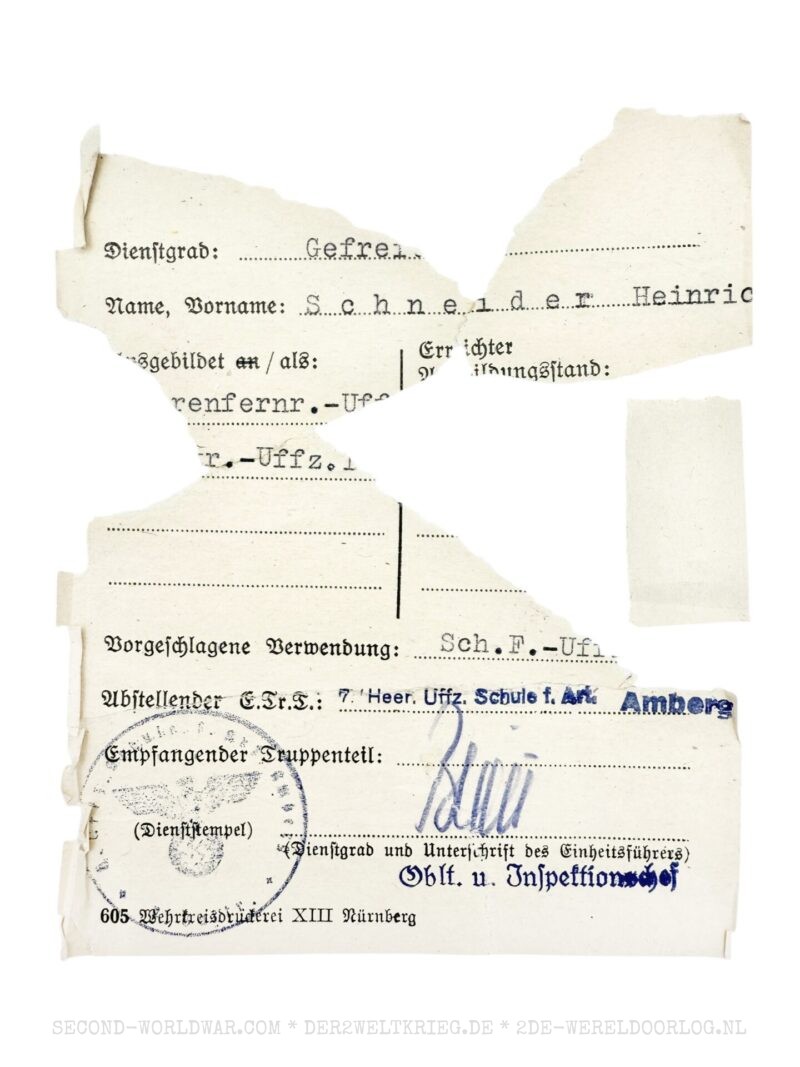 Dienstgrad: Gefrei
Name, Vorname: Schneider Heinric
sgebildet an / als:
Err ichter
ildungsstand:
renfernr.-Uff
r.-Uffz.
Vorgeschlagene Verwendung: Sch.F.-Uff
Abstellender E.Tr.T.: 7. Heer. Uffz. Schule f. Art. Amberg
Empfangender Truppenteil:
(Dienststempel)
(Dienstgrad und Unterschrift des Einheitsführers)
Oblt. u. Inspektionschef
605 Wehrkreisdruckerei XIII Nürnberg
SECOND-WORLDWAR.COM * DER2WELTKRIEG.DE * 2DE-WERELDOORLOG.NL